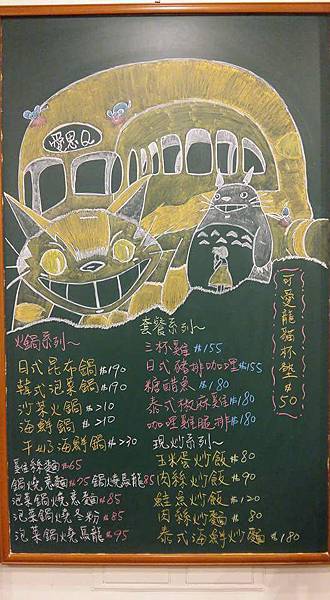 愛思Q
可愛龍貓杯飲$50
火鍋系列～
日式昆布鍋$190
韓式泡菜鍋$190
沙茶火鍋$210
海鮮鍋$210
牛奶海鮮鍋$230
雞絲麵$65
鍋燒意麵$75 鍋燒烏龍85
泡菜鍋燒意麵$85
泡菜鍋燒冬粉$85
泡菜鍋燒烏龍$95
套餐系列～
三杯雞$155
日式豬排咖哩$155
糖醋魚$180
泰式椒麻雞$180
咖哩雞腿排$180
現炒系列～
玉米蛋炒飯$80
肉絲炒飯$90
鮭魚炒飯$120
肉絲炒麵$80
泰式海鮮炒麵$180